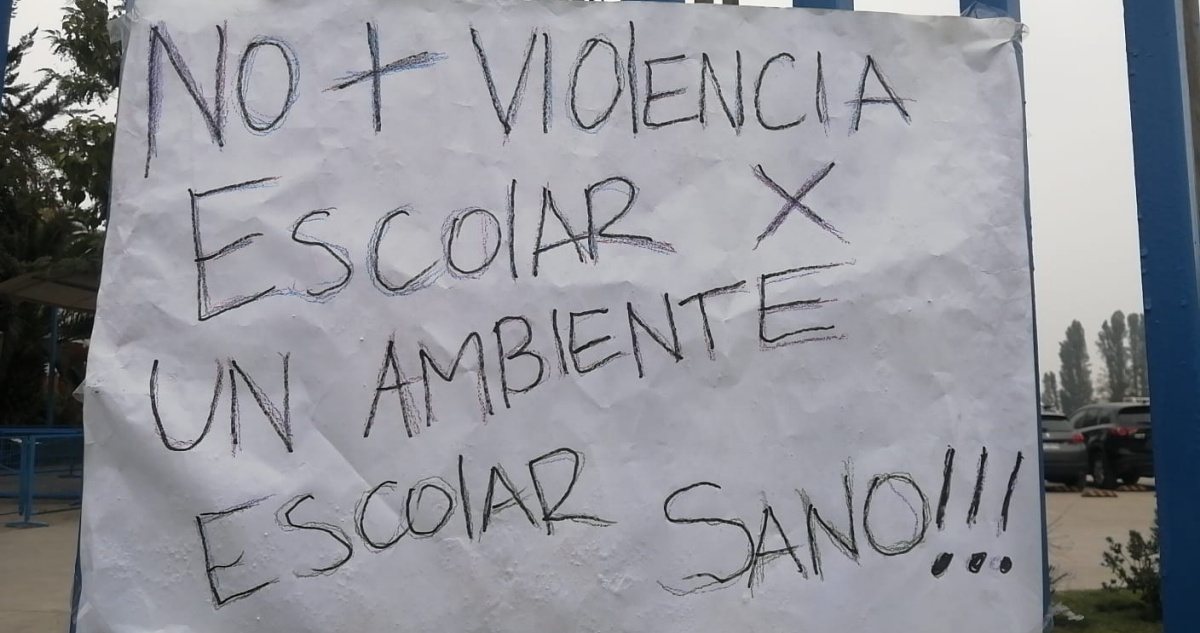 NO + VIOlENCIA
ESCOlAR X
UN AMBIENTE
ESCOlAR SANO!!!